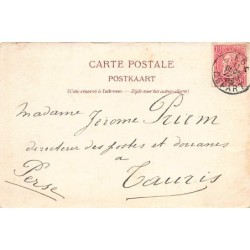 CARTE POSTALE
POSTKAART
(Côté réservé à l'adresse. — Zijde voor het adres alleen.)
Madame Jérome Priem
directeur des postes et douanes
à
Tauris
Perse